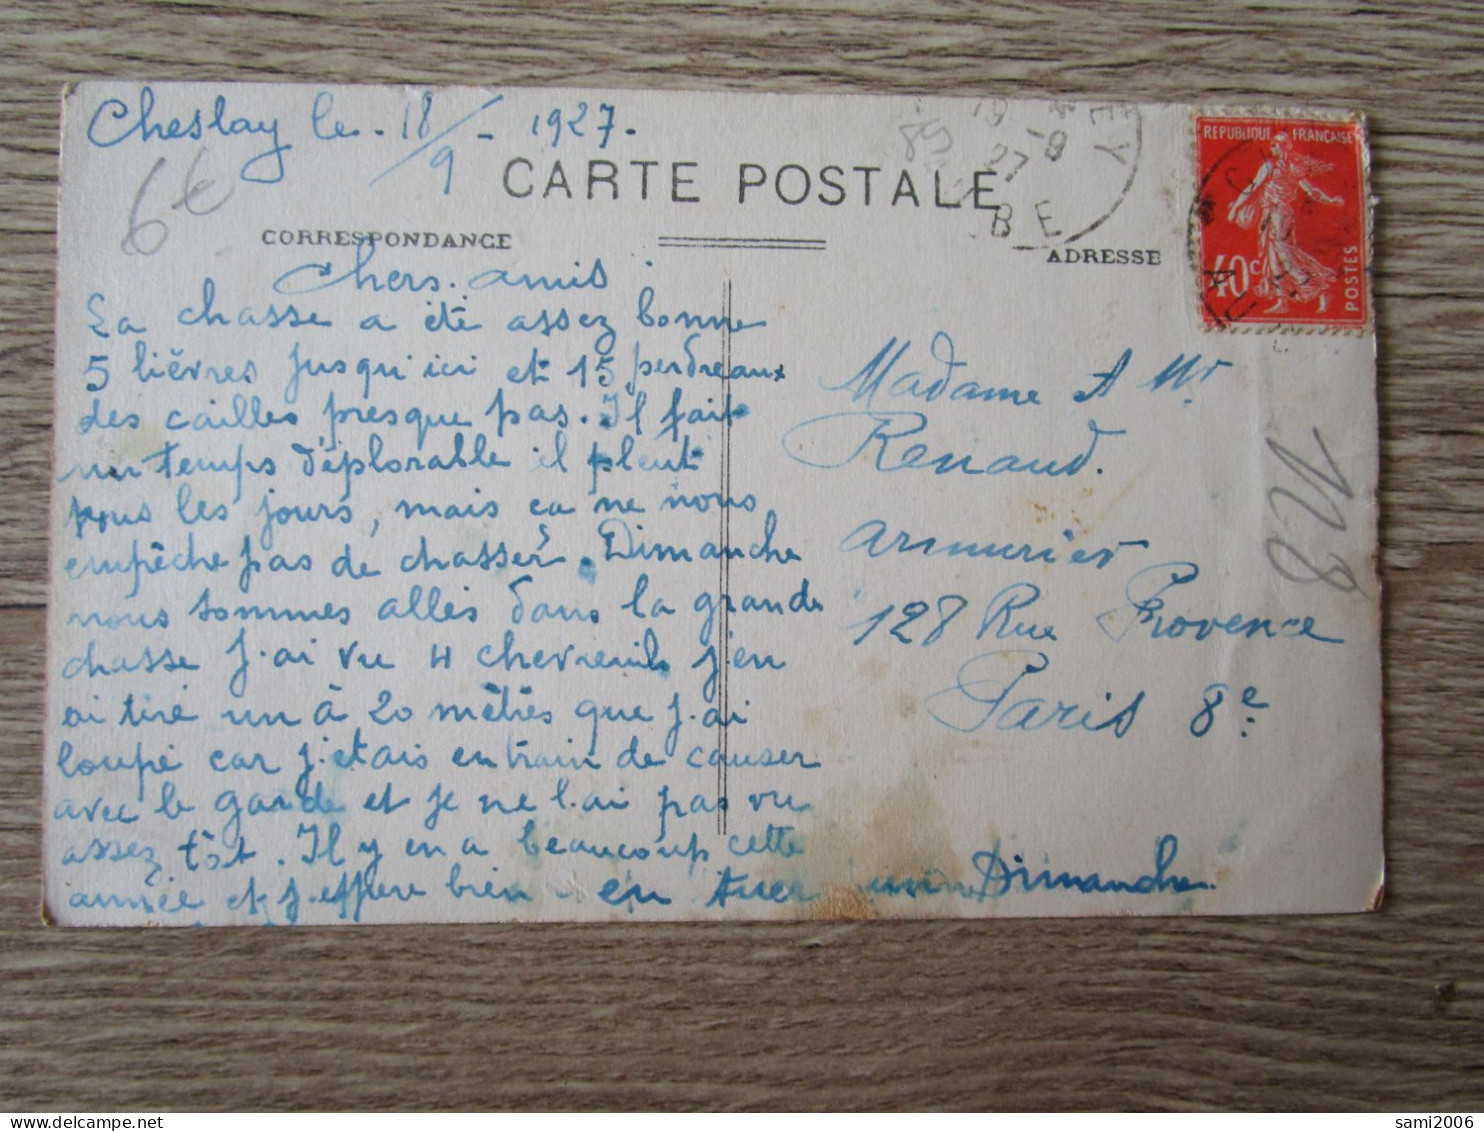 Cheslay le. 18/9 - 1927.
6€
CARTE POSTALE
CORRESPONDANCE
ADRESSE
Chers. amis
La chasse a été assez bonne
5 lièvres jusqu'ici et 15 perdreaux
des cailles presque pas. Il fait
un temps déplorable il pleut
tous les jours, mais ça ne nous
empêche pas de chasser. Dimanche
nous sommes allés dans la grande
chasse J.ai vu 4 chevreuils j'en
ai tiré un à 20 mètres que j.ai
loupé car j.etais en train de causer
avec le garde et je ne l.ai pas vu
assez tôt. Il y en a beaucoup cette
année et j.espère bien en tuer un Dimanche.
Madame et Mr
Renaud.
armurier
128 Rue Provence
Paris 8e
N8
89
19 -9
27
EY
BE
REPUBLIQUE FRANÇAISE
40c
POSTES
sami2006